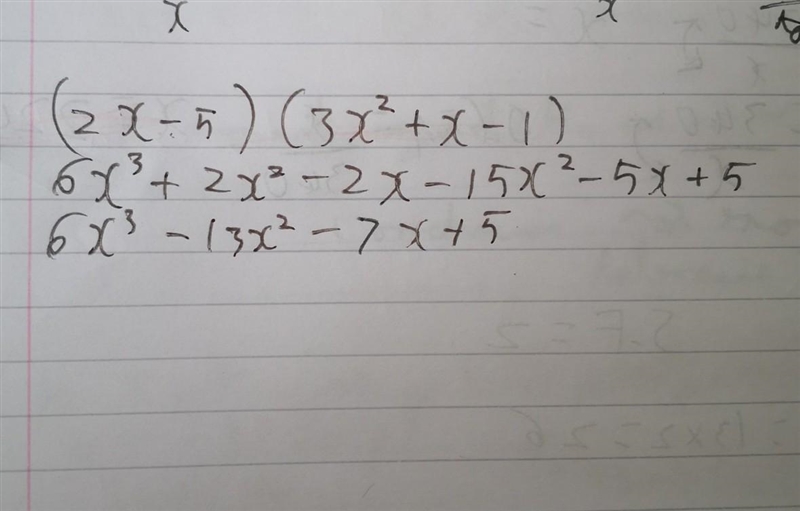 x x
(2x-5)(3x²+x-1)
6x³+2x²-2x-15x²-5x+5
6x³-13x²-7x+5